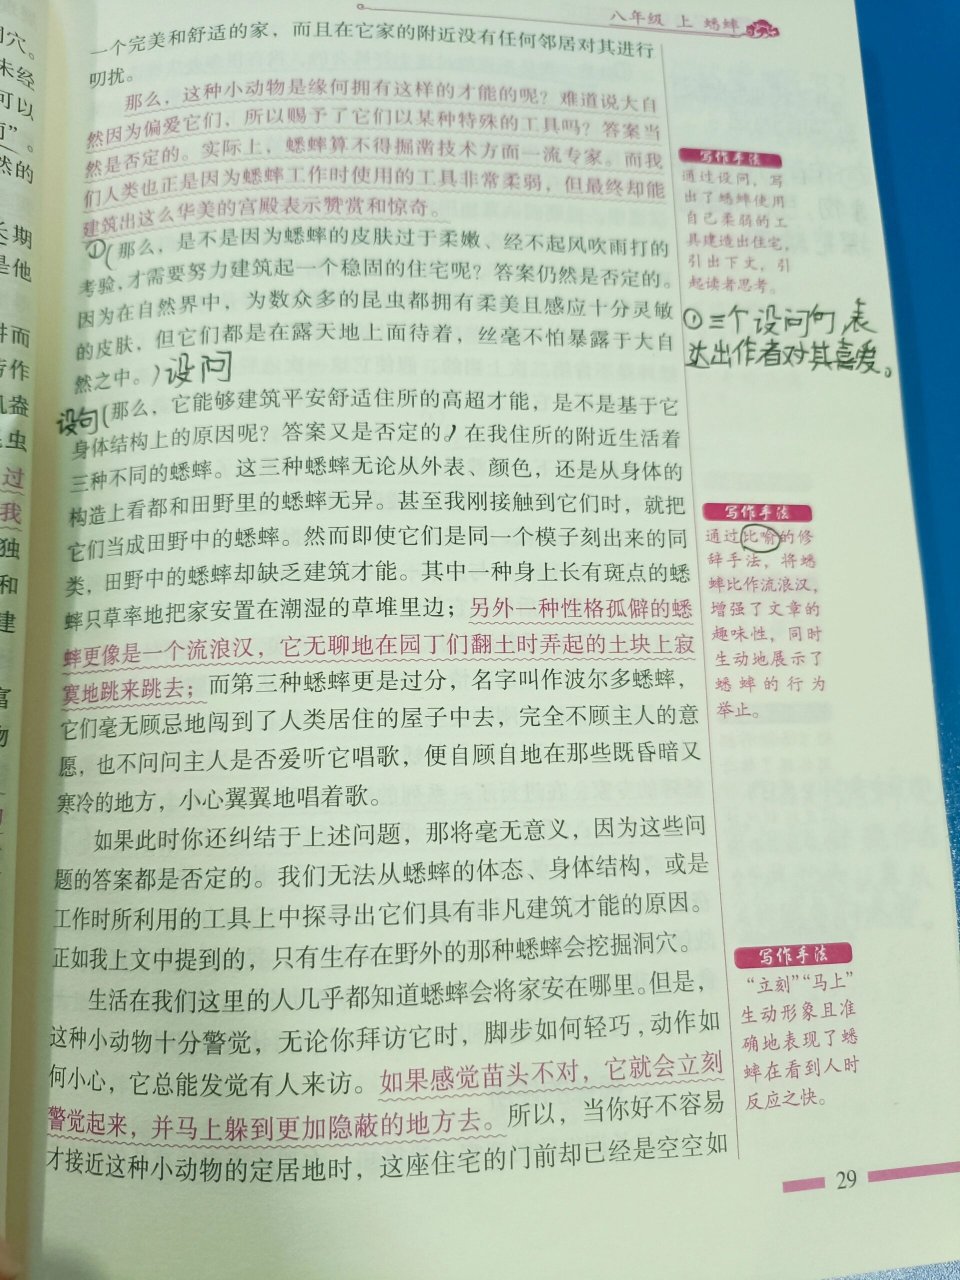 八年级 上 蟋蟀
一个完美和舒适的家，而且在它家的附近没有任何邻居对其进行
叨扰。
那么，这种小动物是缘何拥有这样的才能的呢？难道说大自
然因为偏爱它们，所以赐予了它们以某种特殊的工具吗？答案当
然是否定的。实际上，蟋蟀算不得掘凿技术方面一流专家。而我
们人类也正是因为蟋蟀工作时使用的工具非常柔弱，但最终却能
建筑出这么华美的宫殿表示赞赏和惊奇。
①（那么，是不是因为蟋蟀的皮肤过于柔嫩、经不起风吹雨打的
考验，才需要努力建筑起一个稳固的住宅呢？答案仍然是否定的。
因为在自然界中，为数众多的昆虫都拥有柔美且感应十分灵敏
的皮肤，但它们都是在露天地上面待着，丝毫不怕暴露于大自
然之中。）设问
设句（那么，它能够建筑平安舒适住所的高超才能，是不是基于它
身体结构上的原因呢？答案又是否定的。）在我住所的附近生活着
三种不同的蟋蟀。这三种蟋蟀无论从外表、颜色，还是从身体的
构造上看都和田野里的蟋蟀无异。甚至我刚接触到它们时，就把
它们当成田野中的蟋蟀。然而即使它们是同一个模子刻出来的同
类，田野中的蟋蟀却缺乏建筑才能。其中一种身上长有斑点的蟋
蟀只草率地把家安置在潮湿的草堆里边；另外一种性格孤僻的蟋
蟀更像是一个流浪汉，它无聊地在园丁们翻土时弄起的土块上寂
寞地跳来跳去；而第三种蟋蟀更是过分，名字叫作波尔多蟋蟀，
它们毫无顾忌地闯到了人类居住的屋子中去，完全不顾主人的意
愿，也不问问主人是否爱听它唱歌，便自顾自地在那些既昏暗又
寒冷的地方，小心翼翼地唱着歌。
如果此时你还纠结于上述问题，那将毫无意义，因为这些问
题的答案都是否定的。我们无法从蟋蟀的体态、身体结构，或是
工作时所利用的工具上中探寻出它们具有非凡建筑才能的原因。
正如我上文中提到的，只有生存在野外的那种蟋蟀会挖掘洞穴。
生活在我们这里的人几乎都知道蟋蟀会将家安在哪里。但是，
这种小动物十分警觉，无论你拜访它时，脚步如何轻巧，动作如
何小心，它总能发觉有人来访。如果感觉苗头不对，它就会立刻
警觉起来，并马上躲到更加隐蔽的地方去。所以，当你好不容易
才接近这种小动物的定居地时，这座住宅的门前却已经是空空如
写作手法
通过设问，写
出了蟋蟀使用
自己柔弱的工
具建造出住宅，
引出下文，引
起读者思考。
①三个设问句，表
达出作者对其喜爱。
写作手法
通过比喻的修
辞手法，将蟋
蟀比作流浪汉，
增强了文章的
趣味性，同时
生动地展示了
蟋蟀的行为
举止。
写作手法
“立刻”“马上”
生动形象且准
确地表现了蟋
蟀在看到人时
反应之快。
29